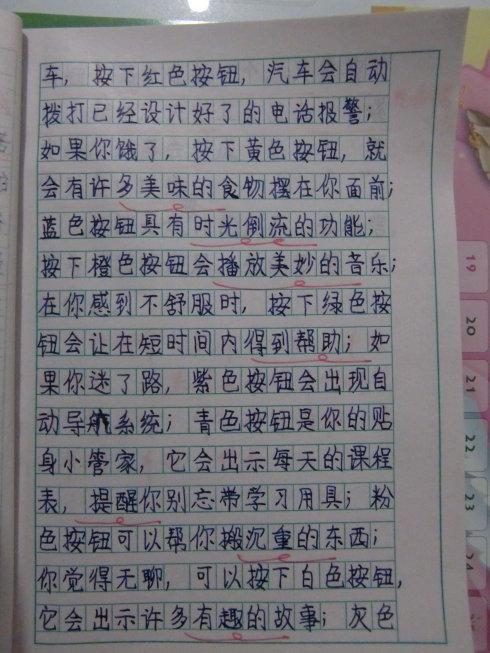 车，按下红色按钮，汽车会自动
拨打已经设计好了的电话报警；
如果你饿了，按下黄色按钮，就
会有许多美味的食物摆在你面前；
蓝色按钮具有时光倒流的功能；
按下橙色按钮会播放美妙的音乐；
在你感到不舒服时，按下绿色按
钮会让在短时间内得到帮助；如
果你迷了路，紫色按钮会出现自
动导航系统；青色按钮是你的贴
身小管家，它会出示每天的课程
表，提醒你别忘带学习用具；粉
色按钮可以帮你搬沉重的东西；
你觉得无聊，可以按下白色按钮，
它会出示许多有趣的故事；灰色
19
20
21
22
23
24